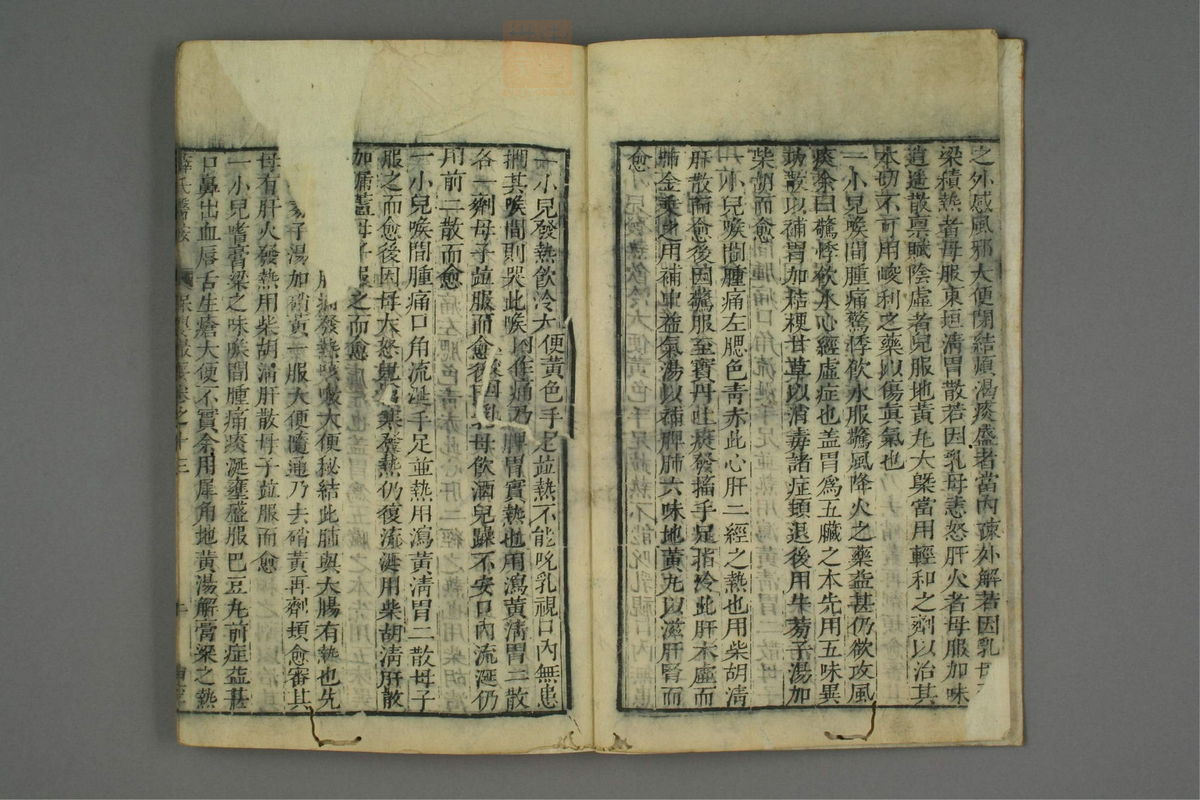 之外感風邪大便閉結煩渴痰盛者當內疎外解若因乳母
梁積熱者母服東垣清胃散若因乳母恚怒肝火者母服加味
逍遙散稟賦陰虛者兒服地黃丸大槩當用輕和之劑以治其
本切不可用峻利之藥以傷眞氣也
一小兒喉間腫痛驚悸飲水服驚風降火之藥益甚仍欲攻風
痰余曰驚悸飲水心經虛症也盖胃爲五臟之本先用五味異
功散以補胃加桔梗甘草以消毒諸症頓退後用牛蒡子湯加
柴胡而愈
一小兒喉間腫痛左腮色靑赤此心肝二經之熱也用柴胡淸
肝散而愈後因驚服至寶丹吐痰發搐手足指冷此肝木虛而
肺金乗之用補中益氣湯以補脾肺六味地黃丸以滋肝腎而
愈
一小兒發熱飲冷大便黃色手足並熱不能吮乳視口內無患
捫其喉間則哭此喉間作痛乃脾胃實熱也用瀉黃淸胃二散
各一劑母子並服而愈後因母飲酒兒躁不安口內流涎仍
用前二散而愈
一小兒喉間腫痛口角流涎手足並熱用瀉黃淸胃二散母子
服之而愈後因母大怒兒寒發熱仍復流涎用柴胡淸肝散
加 母子服之而愈
發熱咳嗽大便秘結此肺與大腸有熱也先
子湯加硝黃一服大便隨通乃去硝黃再劑頓愈審其
母有肝火發熱用柴胡淸肝散母子並服而愈
一小兒嗜膏粱之味喉間腫痛痰涎壅盛服巴豆丸前症益甚
口鼻出血唇舌生瘡大便不實余用犀角地黃湯解膏粱之熱
薛氏醫按 保嬰撮要卷之十三